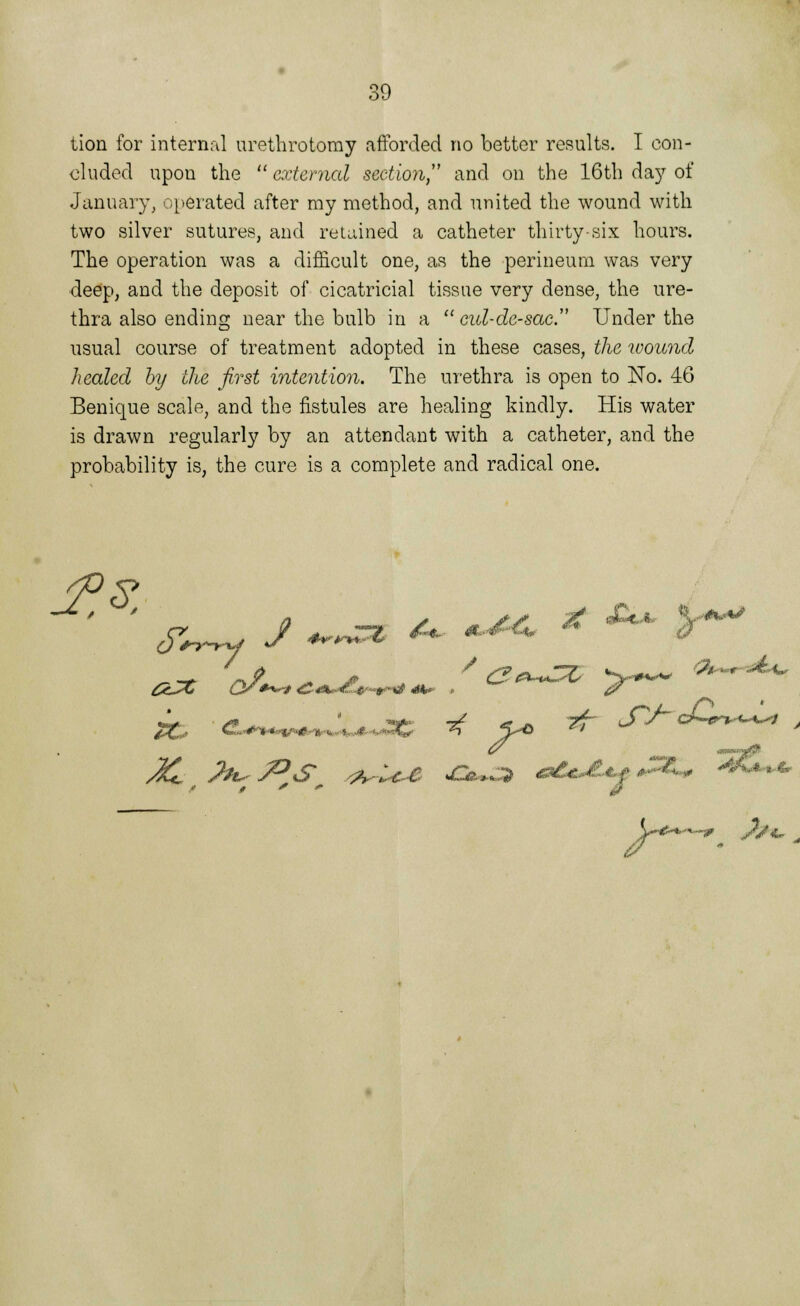 39
tion for internal urethrotomy afforded no better results. I con-
cluded upon the “external section,” and on the 16th day of
January, operated after my method, and united the wound with
two silver sutures, and retained a catheter thirty-six hours.
The operation was a difficult one, as the perineum was very
deep, and the deposit of cicatricial tissue very dense, the ure-
thra also ending near the bulb in a “cul-de-sac.” Under the
usual course of treatment adopted in these cases, the wound
healed by the first intention. The urethra is open to No. 46
Benique scale, and the fistules are healing kindly. His water
is drawn regularly by an attendant with a catheter, and the
probability is, the cure is a complete and radical one.
P.S.
Sorry I to see you
at . Can't you make
it convenient to go to St Louis,
The P.S. will